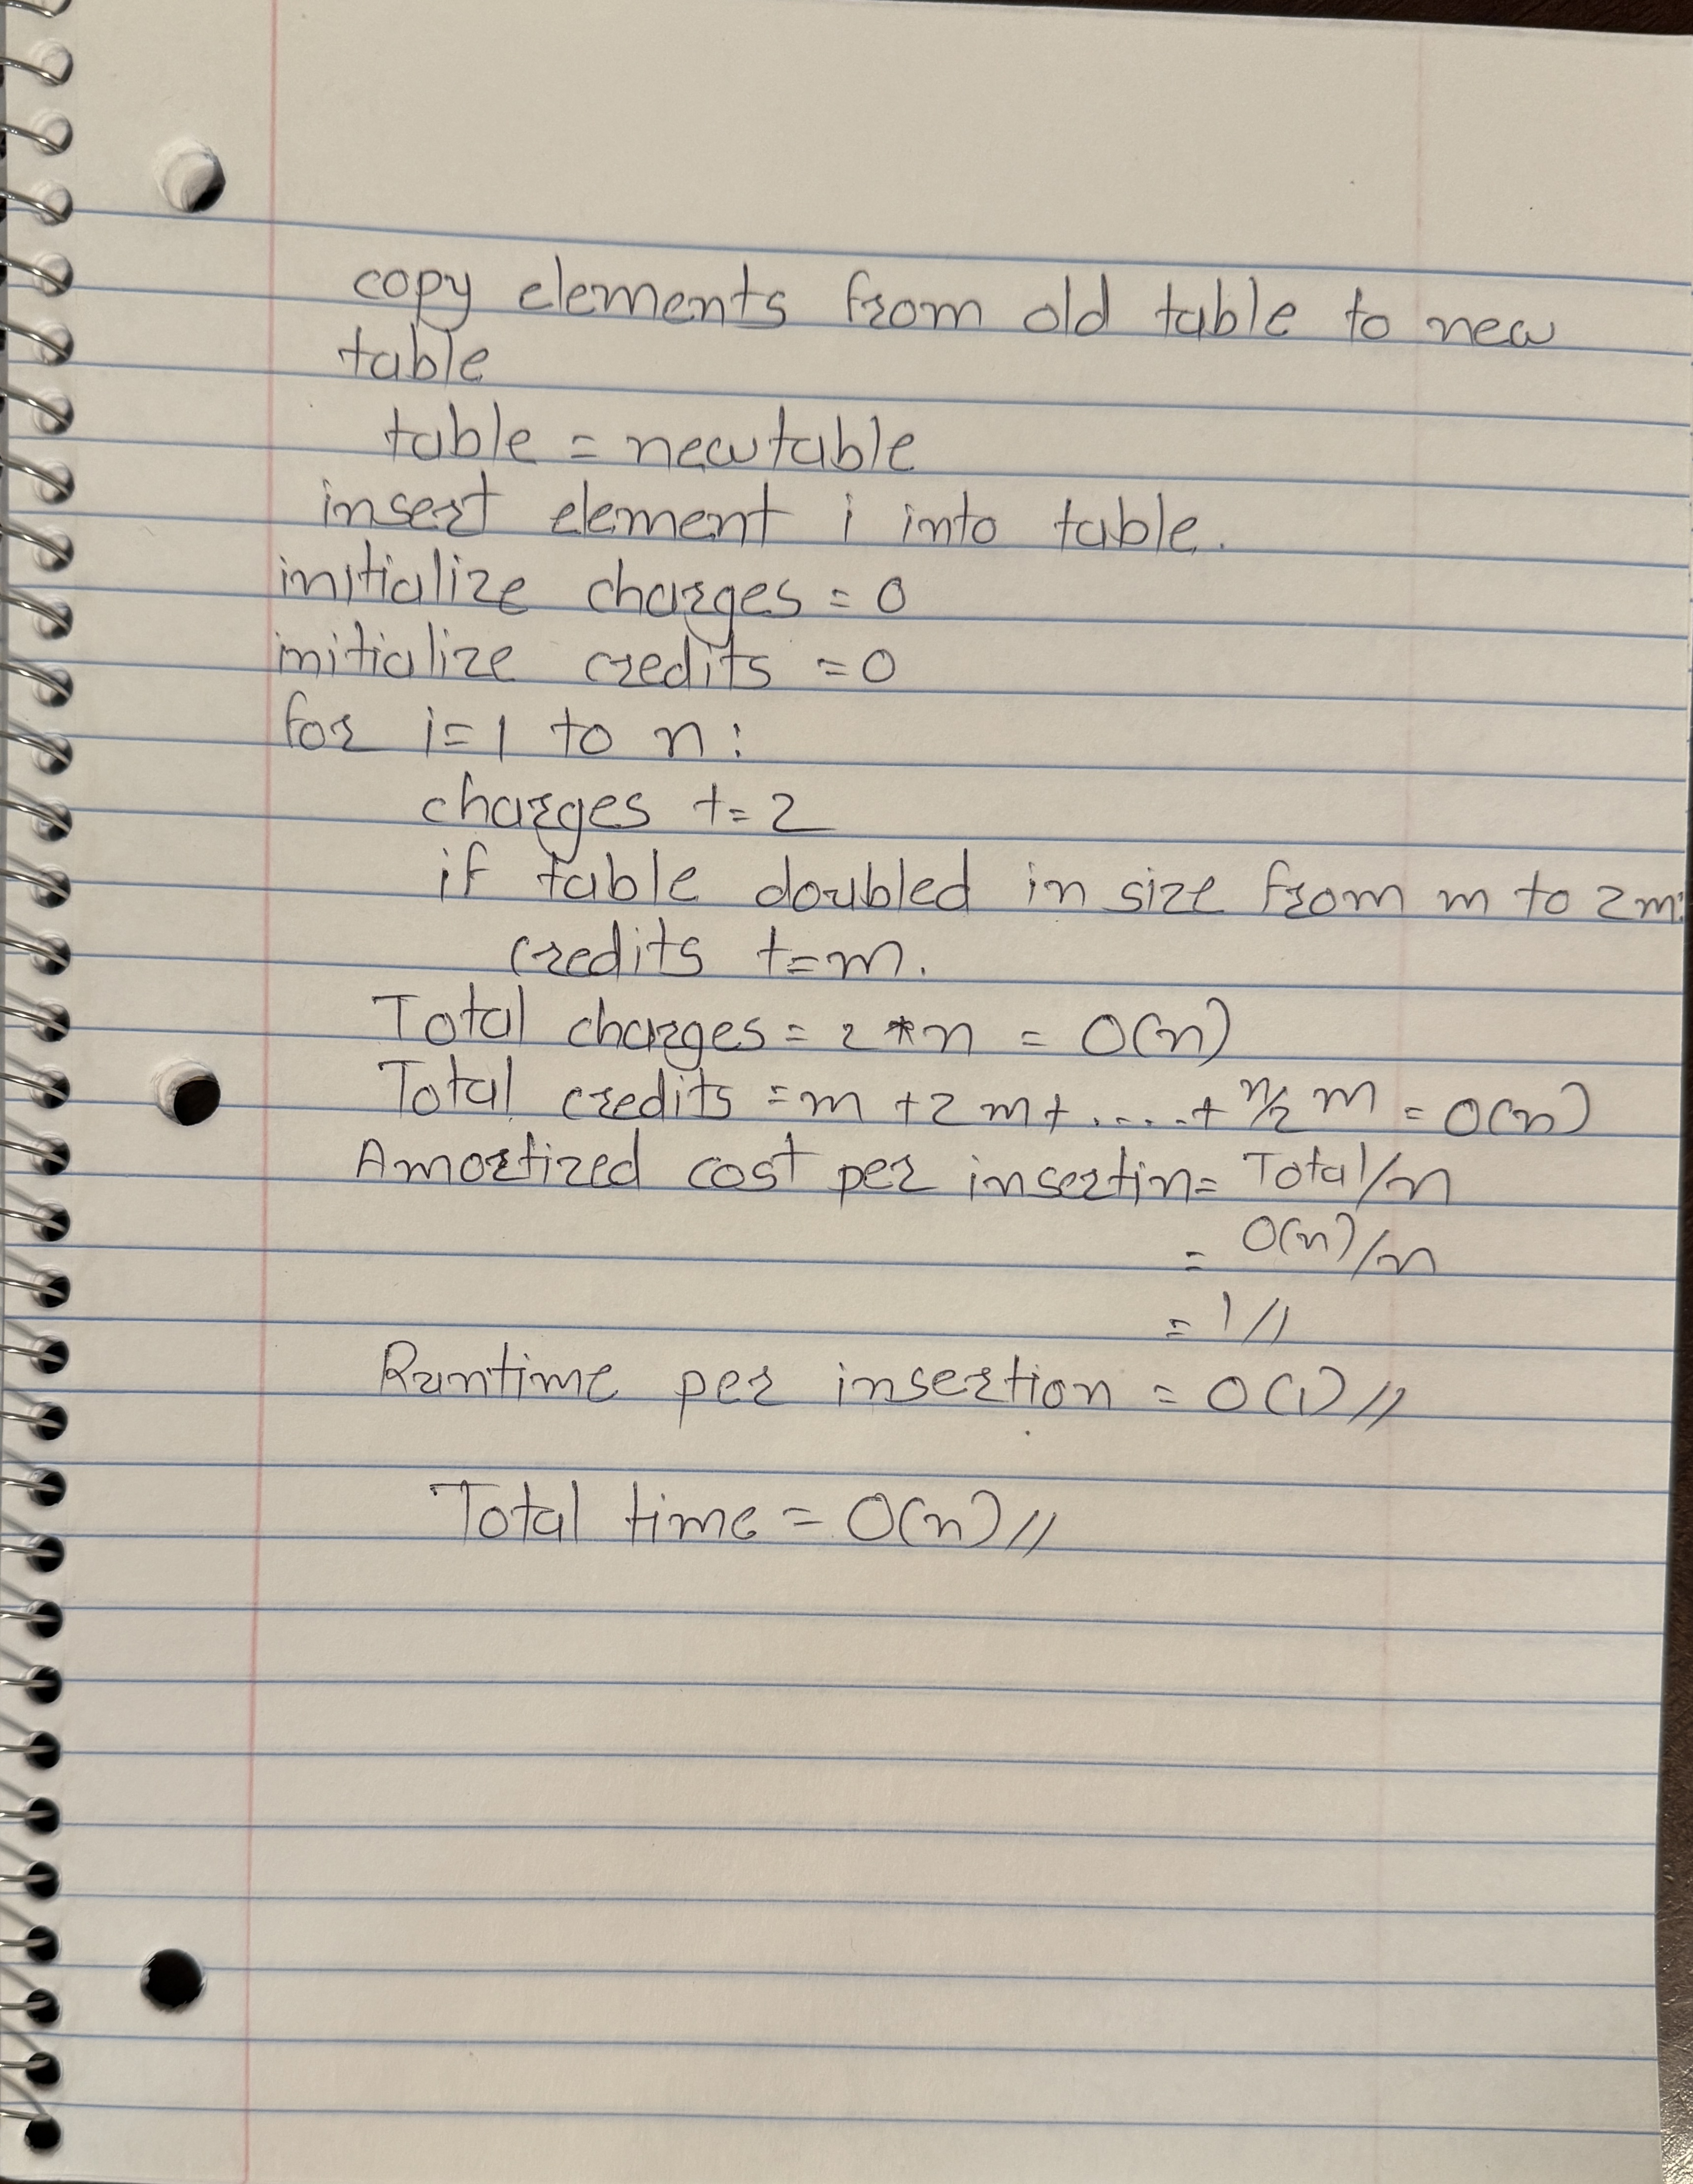 copy elements from old table to new
table
table = newtable
insert element i into table.
initialize charges = 0
initialize credits = 0
for i=1 to n:
charges += 2
if table doubled in size from m to 2m:
credits += m.
Total charges = 2 * n = O(n)
Total credits = m + 2m + ..... + n/2 m = O(n)
Amortized cost per insertin = Total/n
= O(n)/n
= 1//
Runtime per insertion = O(1)//
Total time = O(n)//